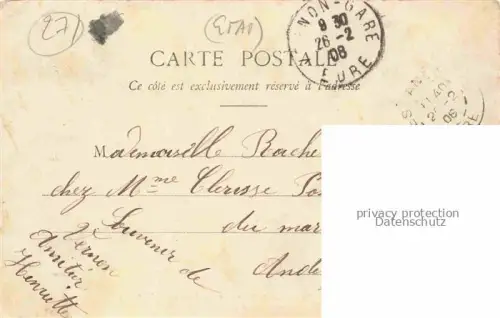 27
(EVAO)
CARTE POSTALE
Ce côté est exclusivement réservé à l'adresse
NON-GARE
8 30
26 -2
06
EURE
26-2
06
Mademoiselle Rache
chez Mme Clerisse
du mar
Ande
Souvenir de
Vernon
Amitié
Henriette
privacy protection
Datenschutz